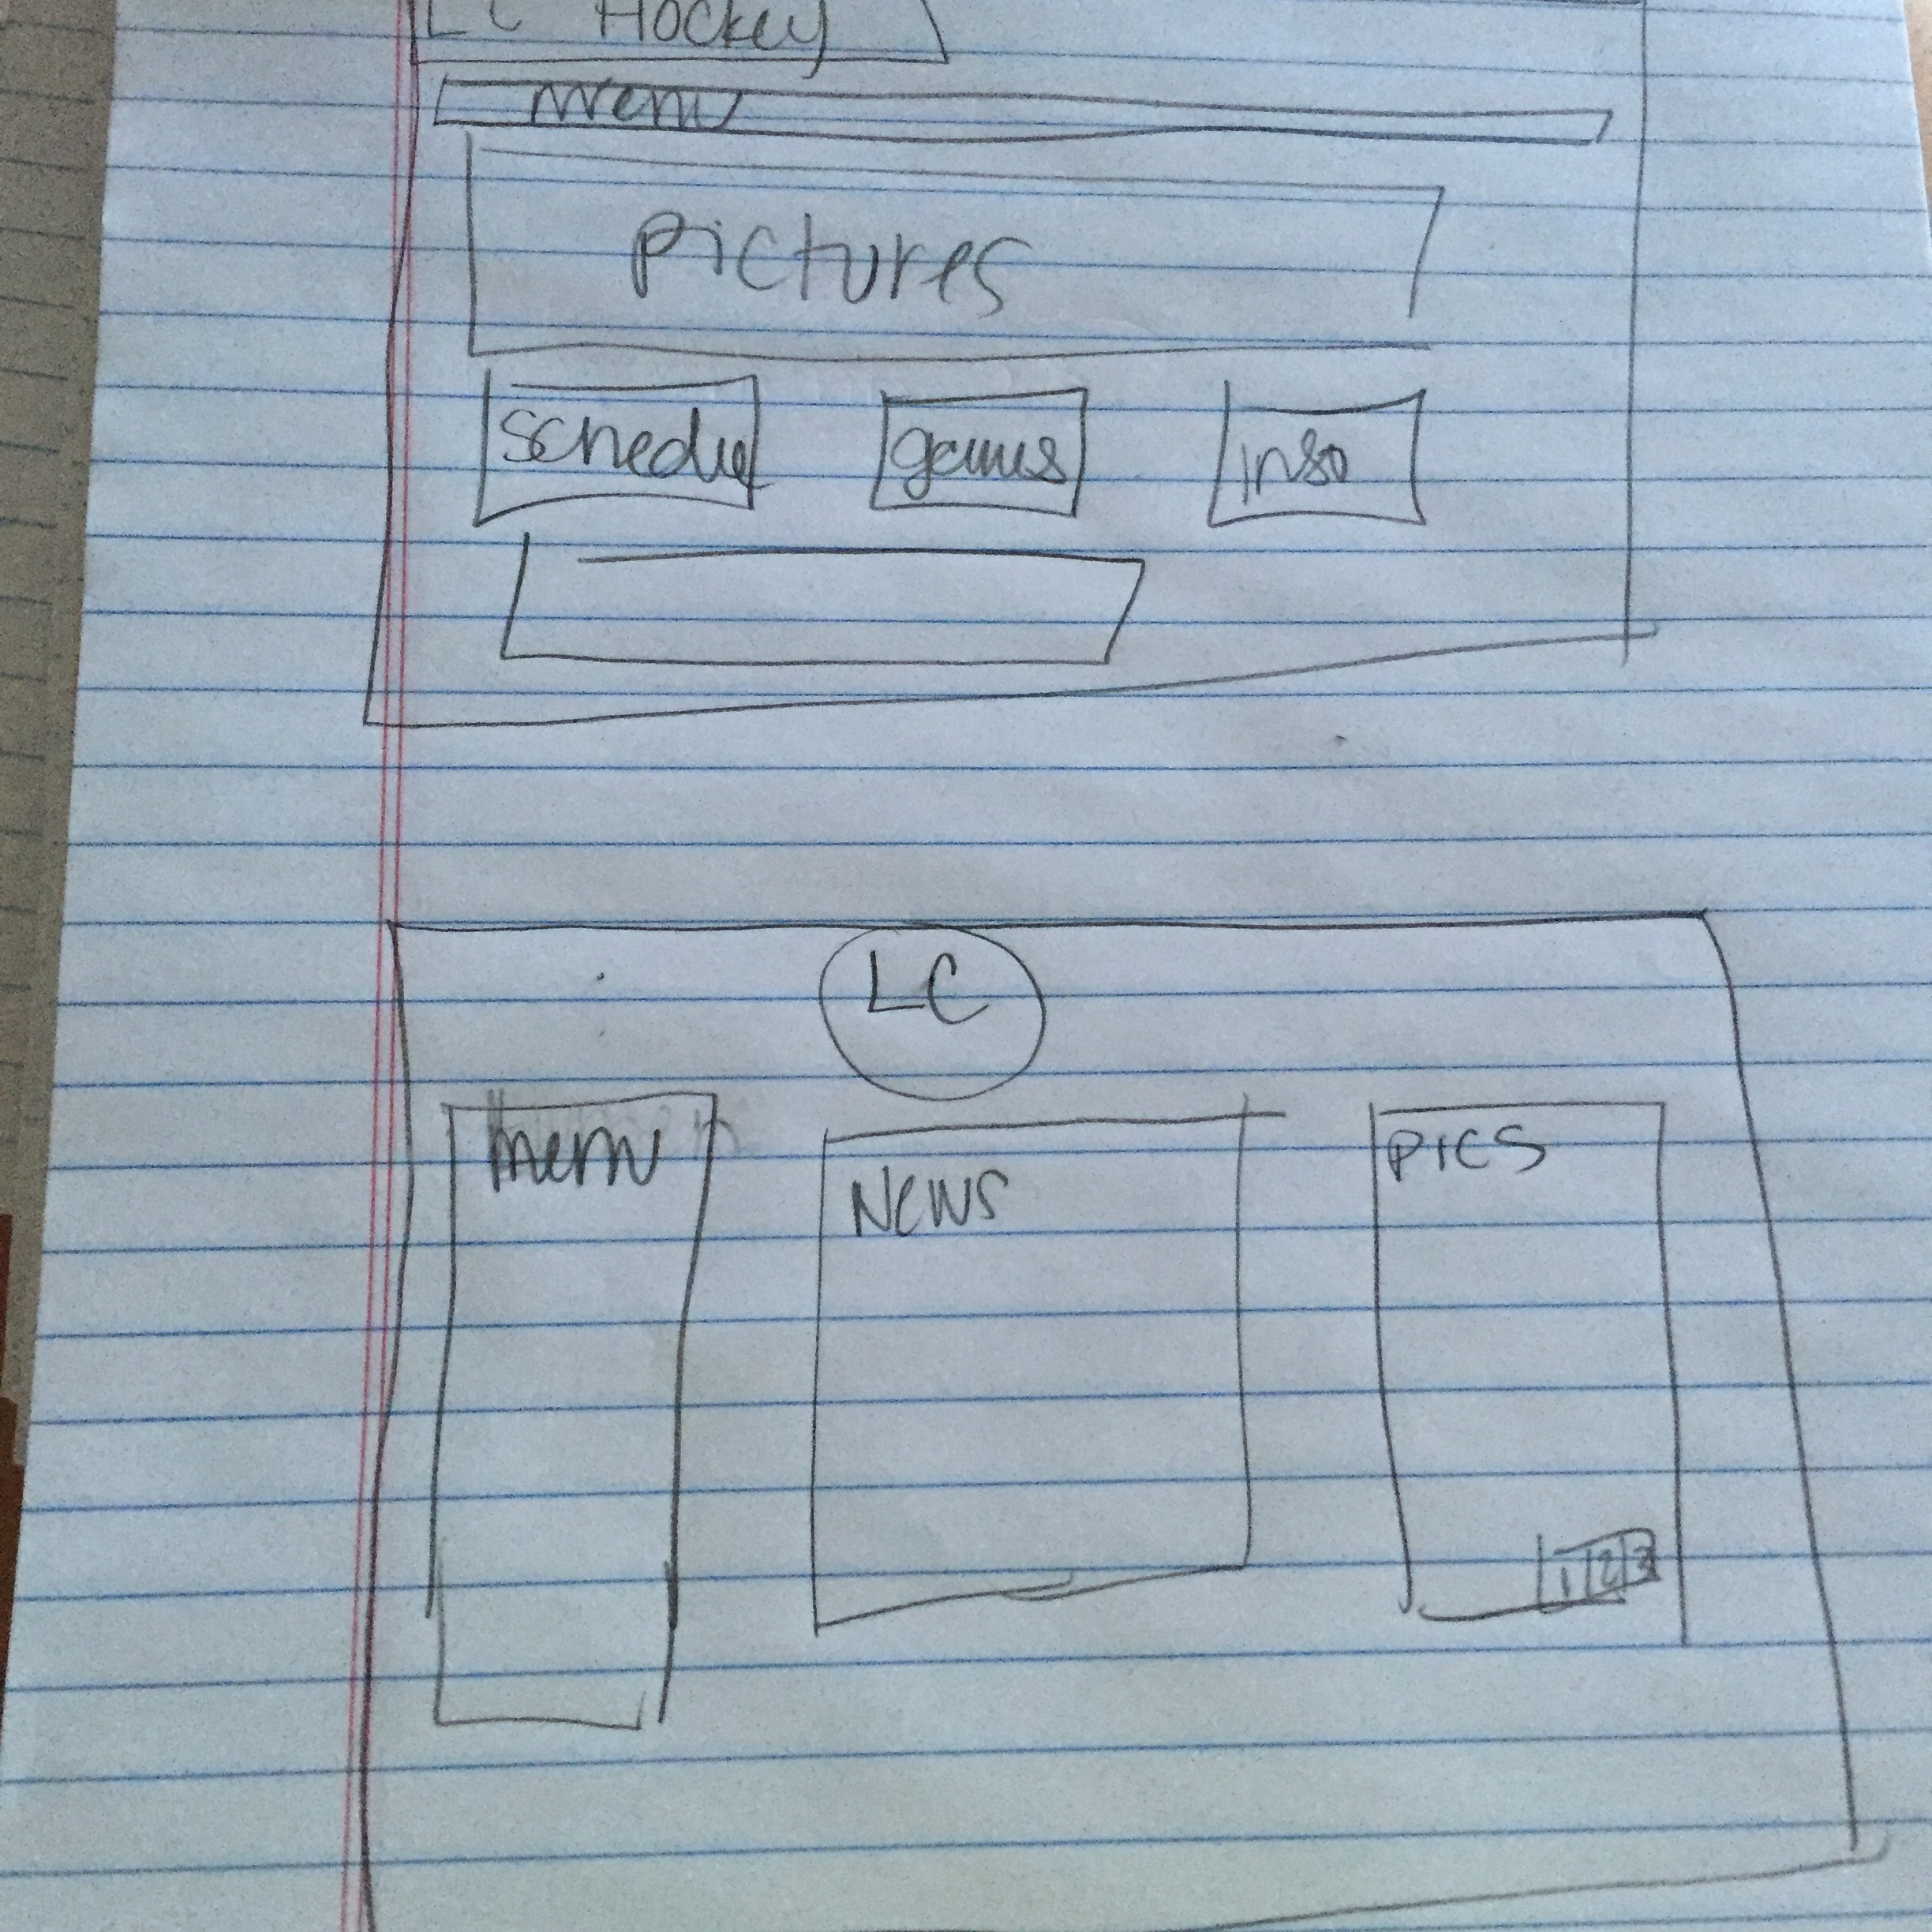 LC Hockey
menu
pictures
schedule games info
LC
menu
News
pics
1 2 3